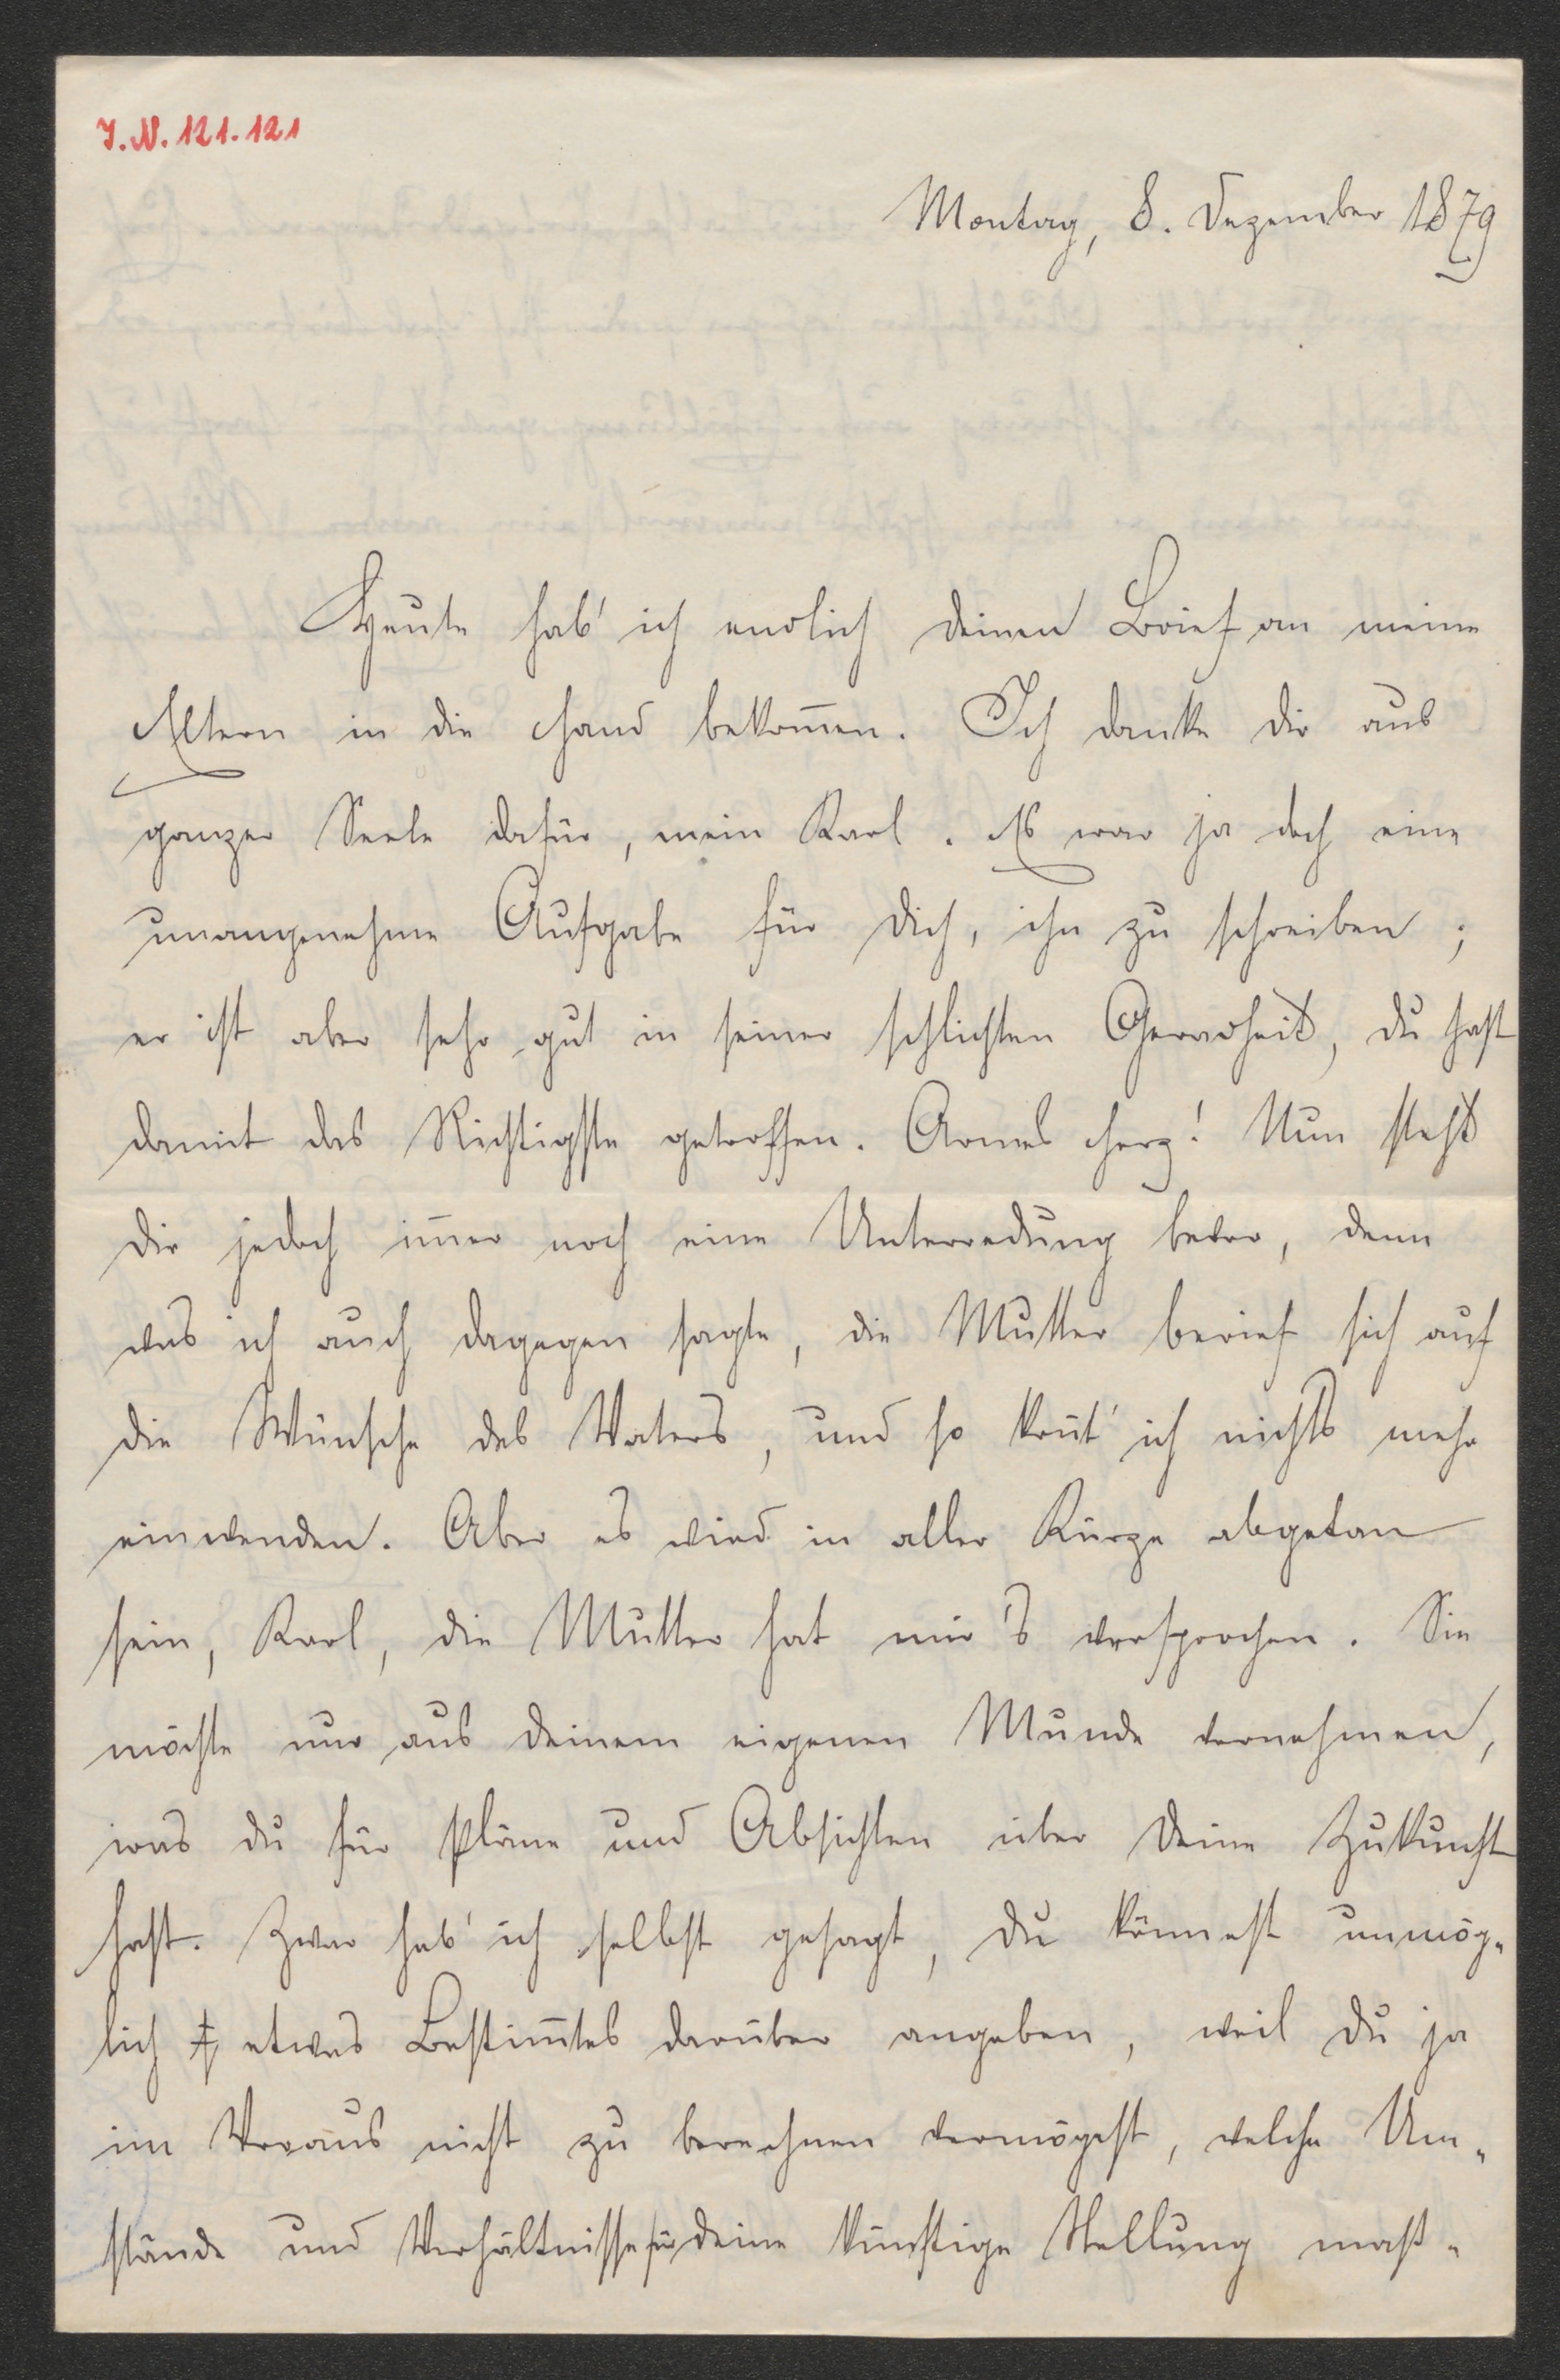 J. N. 121.121
Montag, 8. Dezember 1879
Heute hab' ich endlich deinen Brief an meine
Eltern in die Hand bekom̅en. Ich danke dir aus
ganzer Seele dafür, mein Karl. Es war ja doch eine
unangenehme Aufgabe für dich, ihn zu schreiben;
er ist aber sehr gut in seiner schlichten Geradheit, du hast
damit das Richtigste getroffen. Armes Herz! Nun steht
dir jedoch im̅er noch eine Unterredung bevor, denn
was ich auch dagegen sagte, die Mutter berief sich auf
die Wünsche des Vaters, und so kon̅t' ich nichts mehr
einwenden. Aber es wird in aller Kürze abgetan
sein, Karl, die Mutter hat mir's versprochen. Sie
möchte nur aus deinem eigenen Munde vernehmen,
was du für Pläne und Absichten über deine Zukunft
hast. Zwar hab' ich selbst gesagt, du könnest unmög-
lich etwas Bestim̅tes darüber angeben, weil du ja
im Voraus nicht zu berechnen vermögest, welche Um-
stände und Verhältnisse für deine künftige Stellung maß-